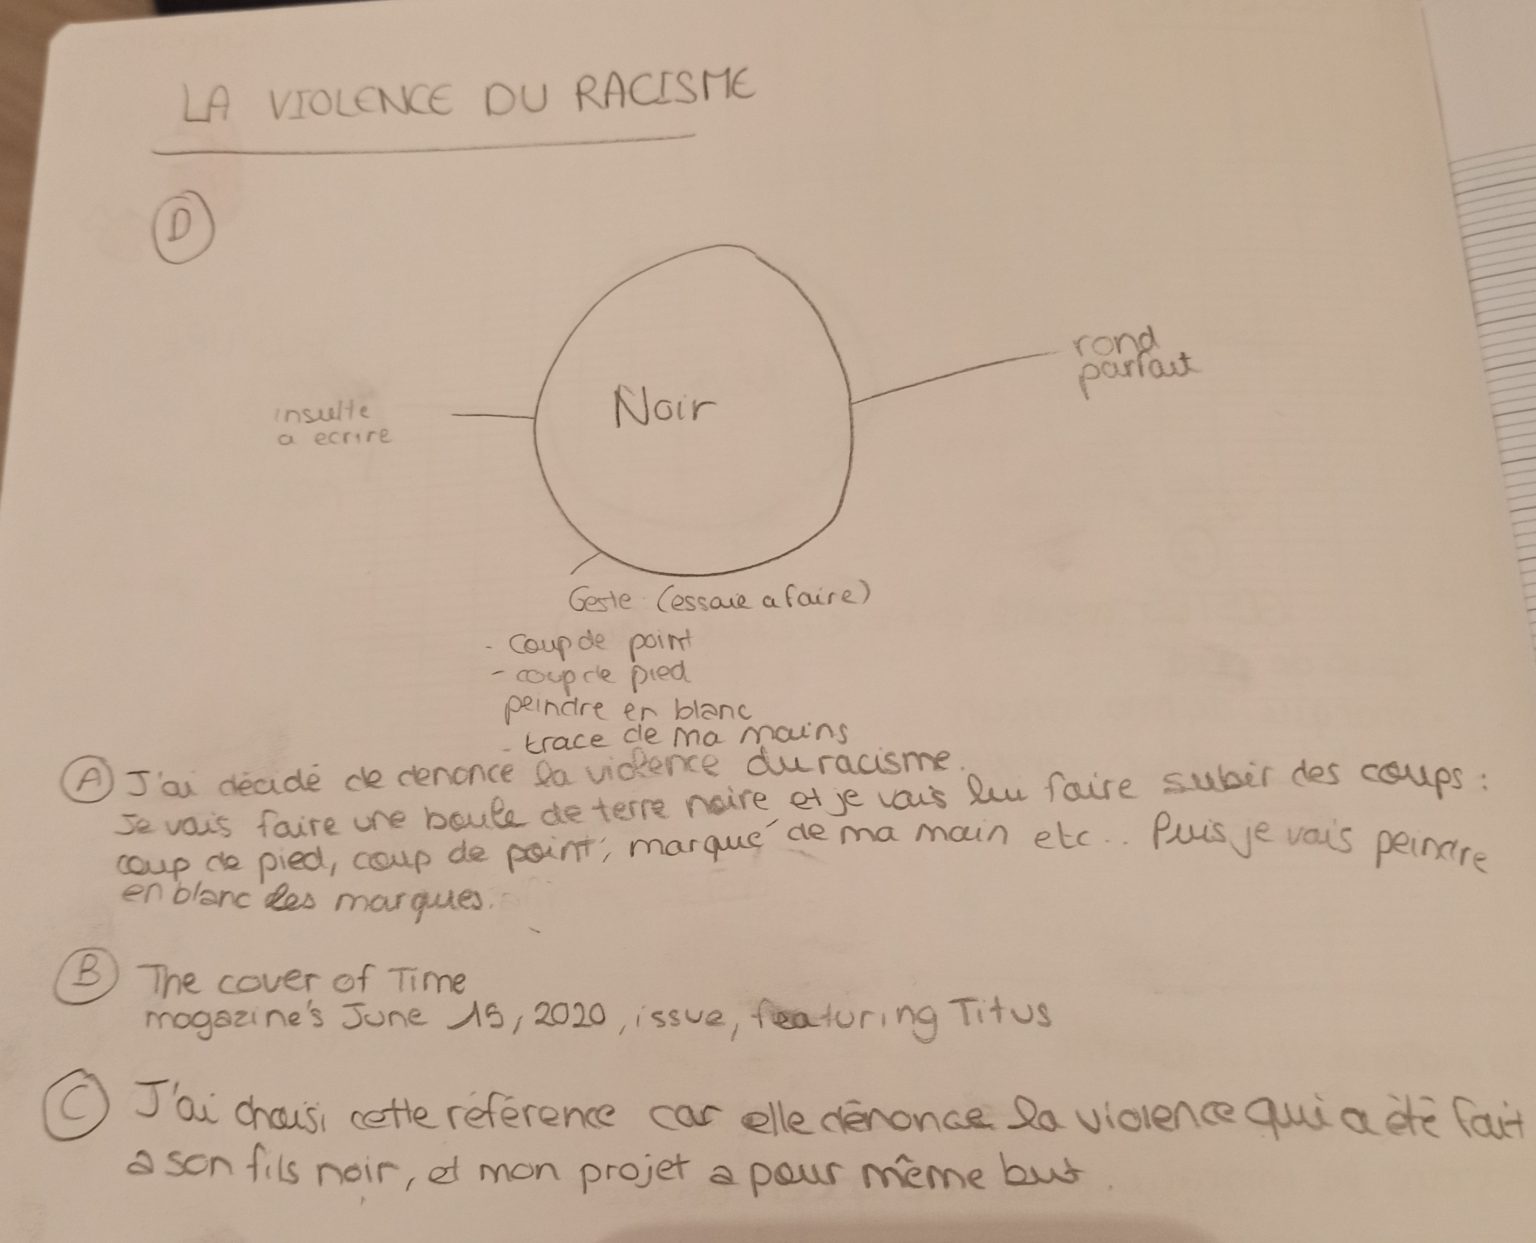 LA VIOLENCE DU RACISME
D
Noir
rond
parfait
insulte
a ecrire
Geste (essaie a faire)
- coup de point
- coup de pied
peindre en blanc
- trace de ma mains
A J'ai décidé de denonce la violence du racisme.
Je vais faire une boule de terre noire et je vais lui faire subir des coups :
coup de pied, coup de point, marqué de ma main etc... Puis je vais peindre
en blanc les marques.
B The cover of Time
magazine's June 15, 2020, issue, featuring Titus
C J'ai choisi cette référence car elle dénonce la violence qui a été fait
a son fils noir, et mon projet a pour même but.